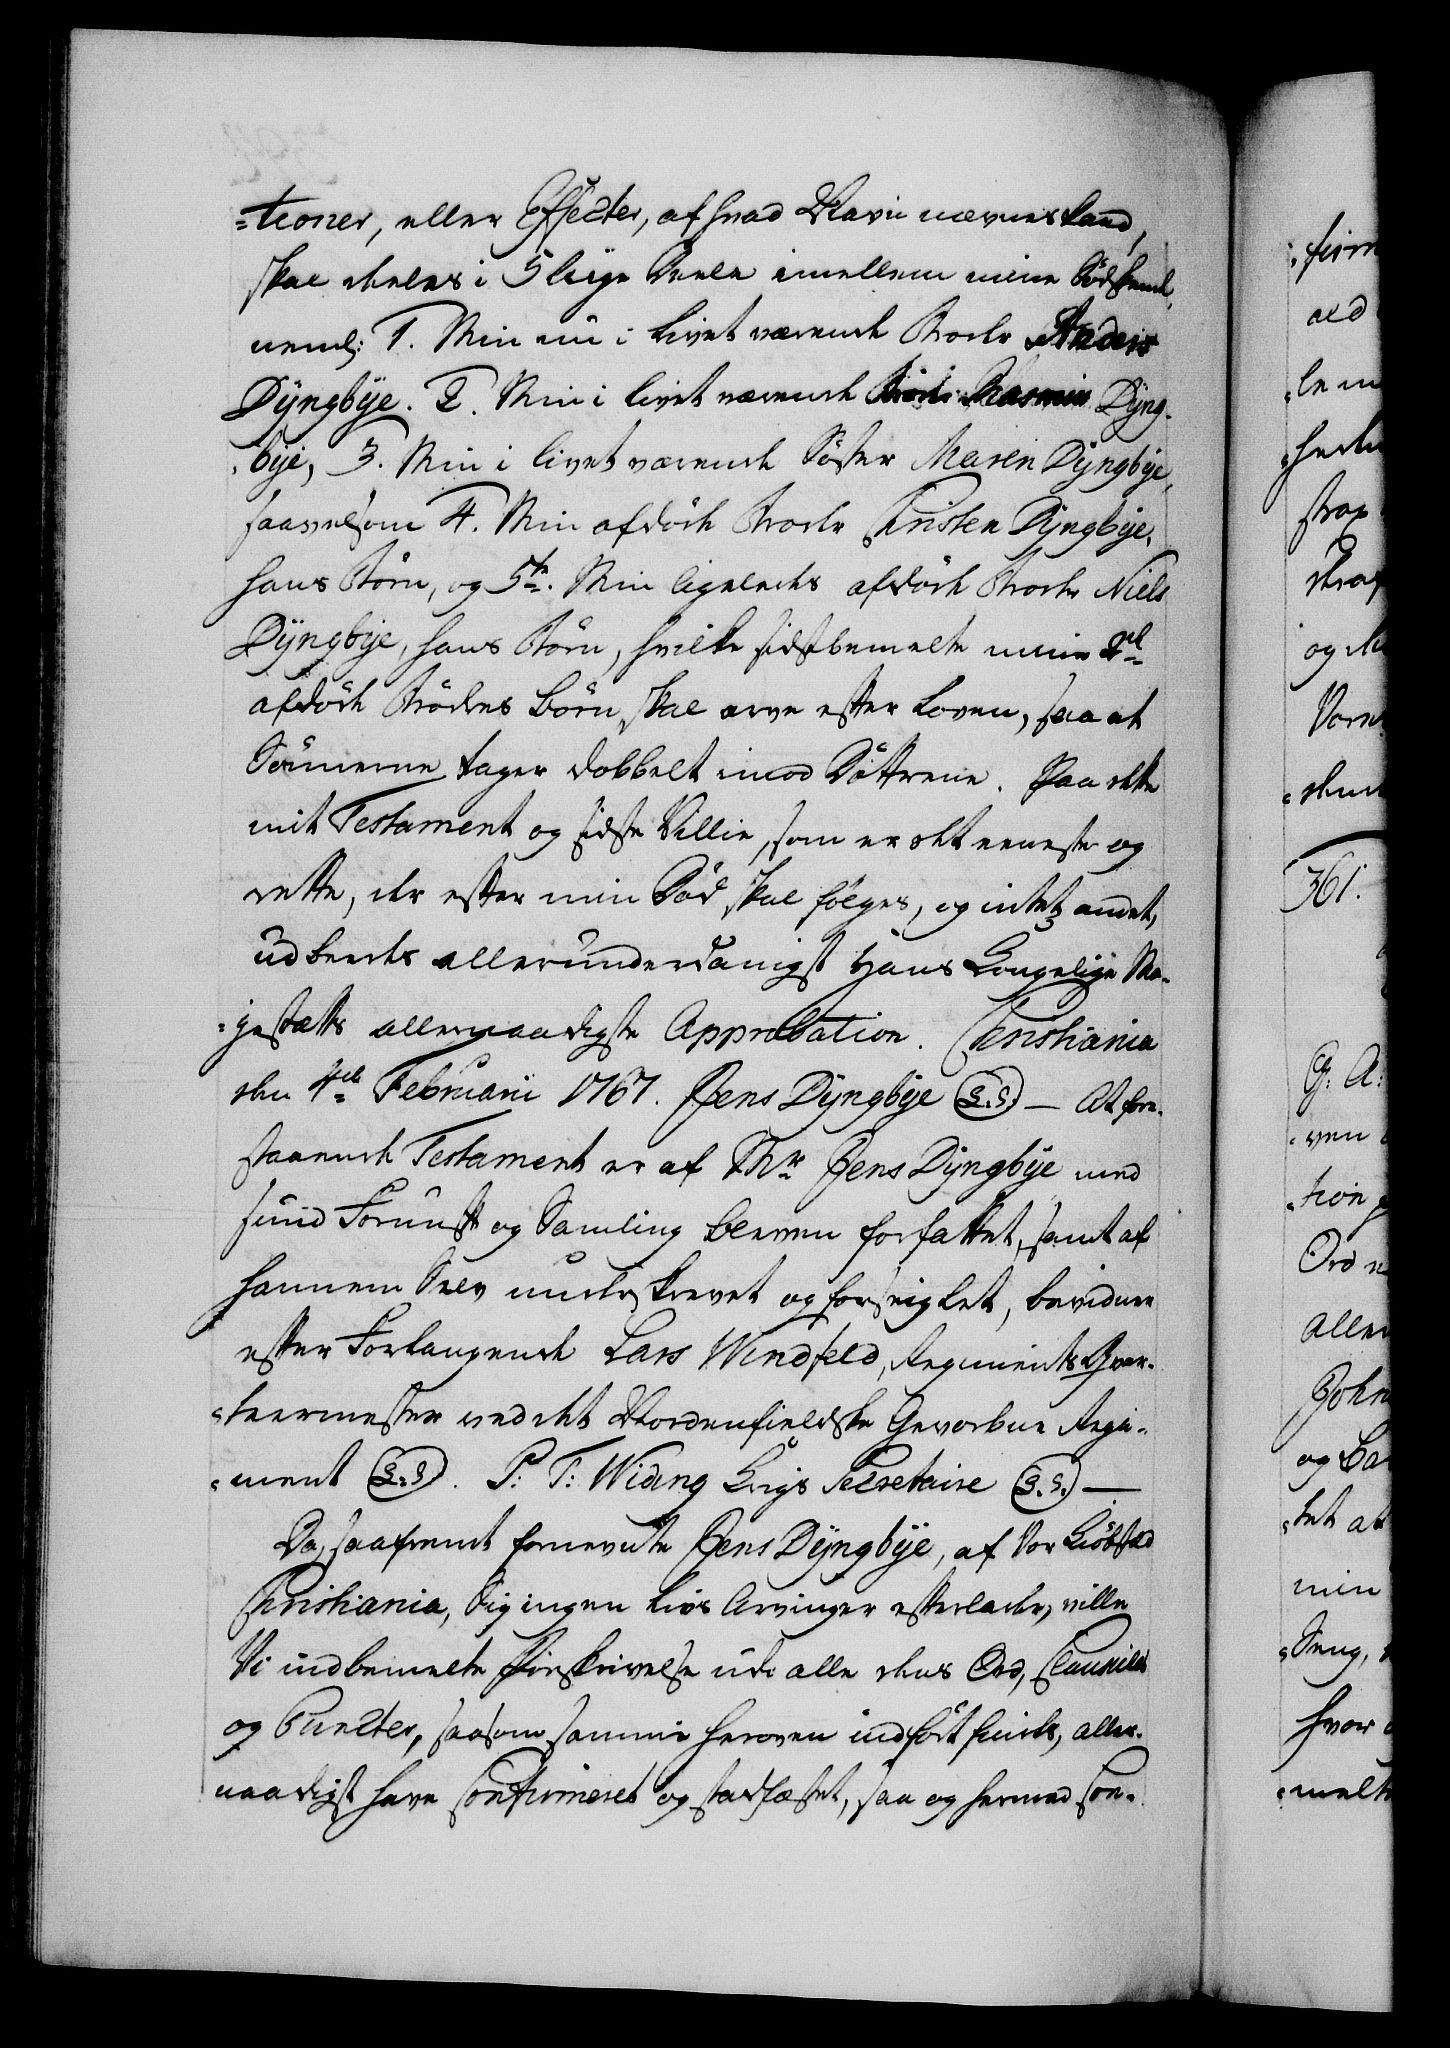 =tioner, eller Effecter, af hvad Navn nævnes kand,
skal deeles i 5 liige Deele imellem mine Sødskende,
neml: 1. Min nu i Livet værende Broder Anders
Dÿngbÿe. 2. Min i livet værende Broder Rasmus Dÿng-
bÿe, 3. Min i livet værende Søster Maren Dÿngbÿe,
saavelsom 4. Min afdøde Broder Christen Dÿngbÿe,
hans Børn, og 5te. Min ligeledes afdøde Broder Niels
Dÿngbÿe, hans Børn, hvilke sidstbemelte mine
afdøde Brødres Børn, skal arve efter Loven, saa at
Sønnerne tager dobbelt imod Døttrene. Paa dette
mit Testament og sidste Villie, som er det eeneste og
rette, der efter min Død skal følges, og intet andet,
udbeedes allerunderdanigst Hans Kongelige Ma-
=jestæts allernaadigste Approbation. Christiania
den 4de Februarii 1767. Jens Dÿngbÿe (L.S.) — At fore-
staaende Testament er af Mr. Jens Dÿngbÿe med
sund Fornuft og Samling bleven forfattet, samt af
hannem Selv underskrevet og forseiglet, bevidner
efter Forlangende Lars Windfeld, Regiments Qvar-
=teermester ved det Nordenfieldske Gevorbne Regi-
=ment (L.S.). P: T: Widing Krigs Secretaire (L.S.) —
Da, saafremt fornevnte Jens Dÿngbÿe, af Vor Kiøbstæd
Christiania, Sig ingen Livs Arvinger efterlader, ville
Vi indbemelte Forskrivelse udi alle dens Ord, Clausuler
og Puncter, saasom samme heroven indført findes, aller-
naadigst have Confirmeret og stadfæstet, saa og hermed Con-
361.